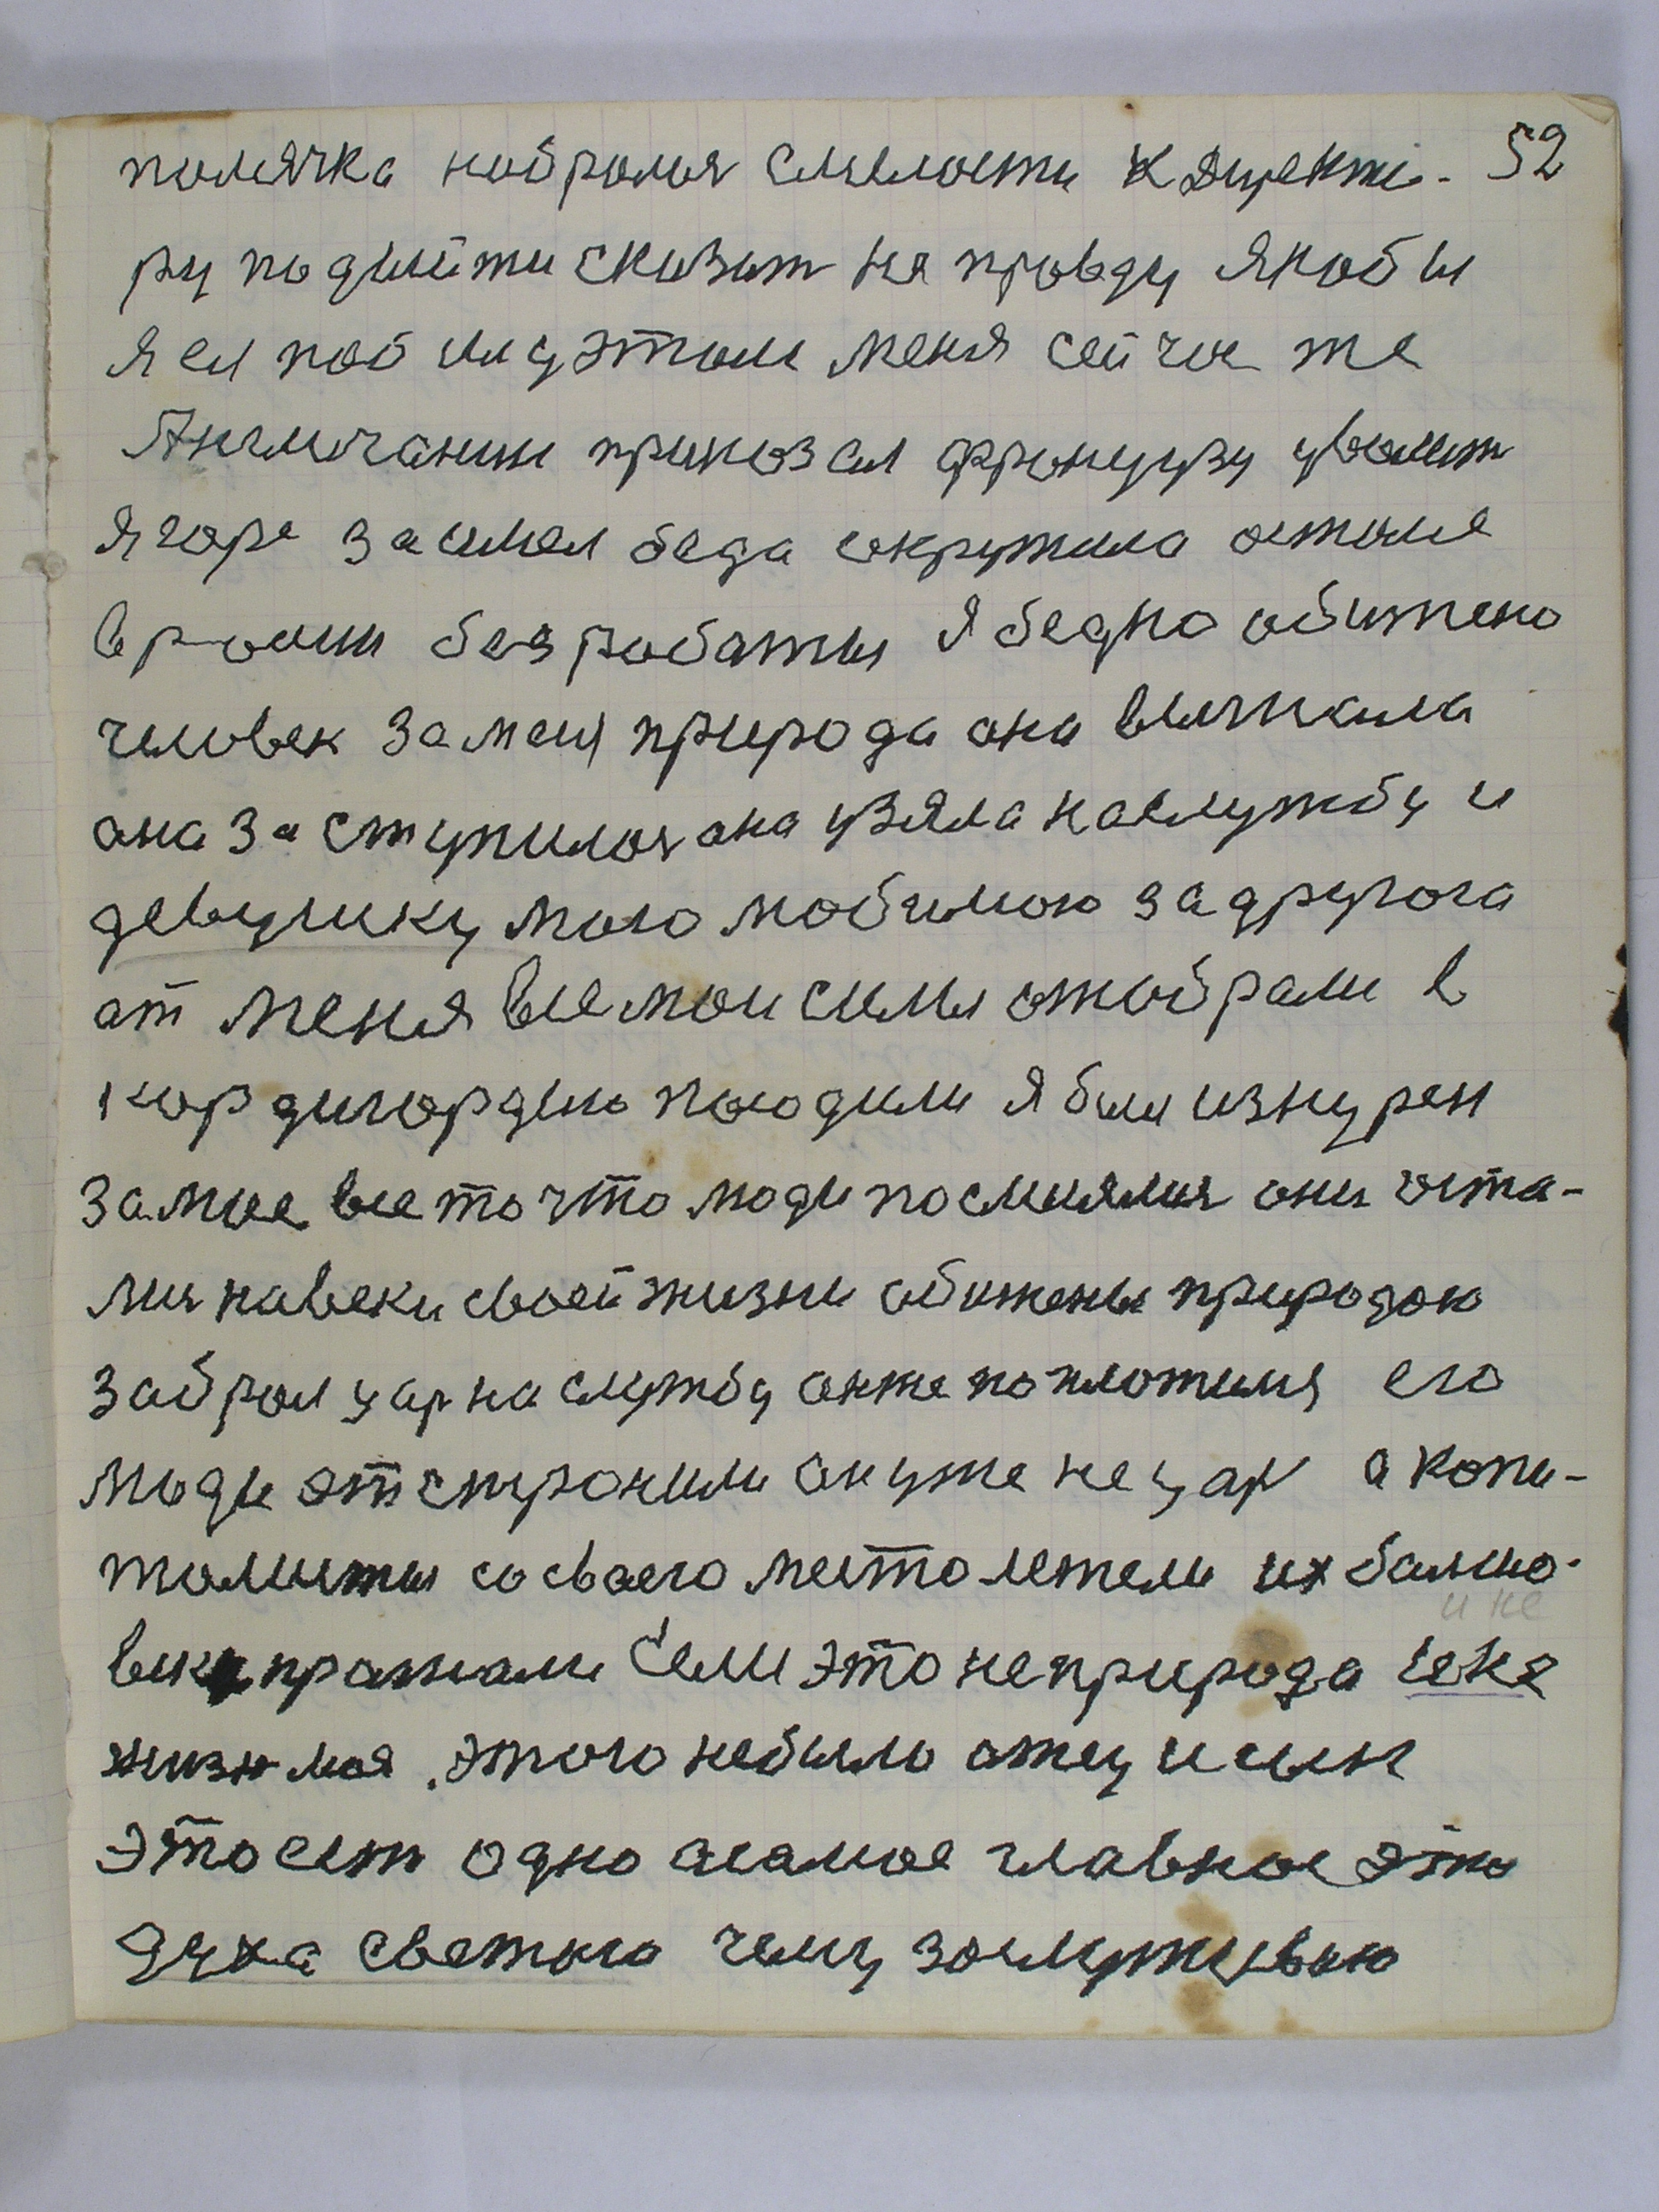 полячка набролся смелости к директо- 52
ру подийти сказат не провду якобы
я ел поб ил узтом меня сейчос же
Англичанин приказал французу уволит
я горе заимел беда сокружила остолся
в росии без работы Я бедно обижено
человек за меня природа она вличкала
она заступилося она узяла на службу и
девушку мою любимою за другога
от меня все мои силы отобрали в
кордигордию посодили я был изнурен
замное все то что люди посмиялися они оста-
лися навеки своей жизни обижены природою
забрал цар на службу он же поплотился его
люди отстронили он уже не цар а копи-
толисты со своего места летели их больше-
вик прогнали Если это не природа и не
и не
жизн моя. этого небыло отец и сын
это ест одно асамое главное это
духа светого чему заслуживою